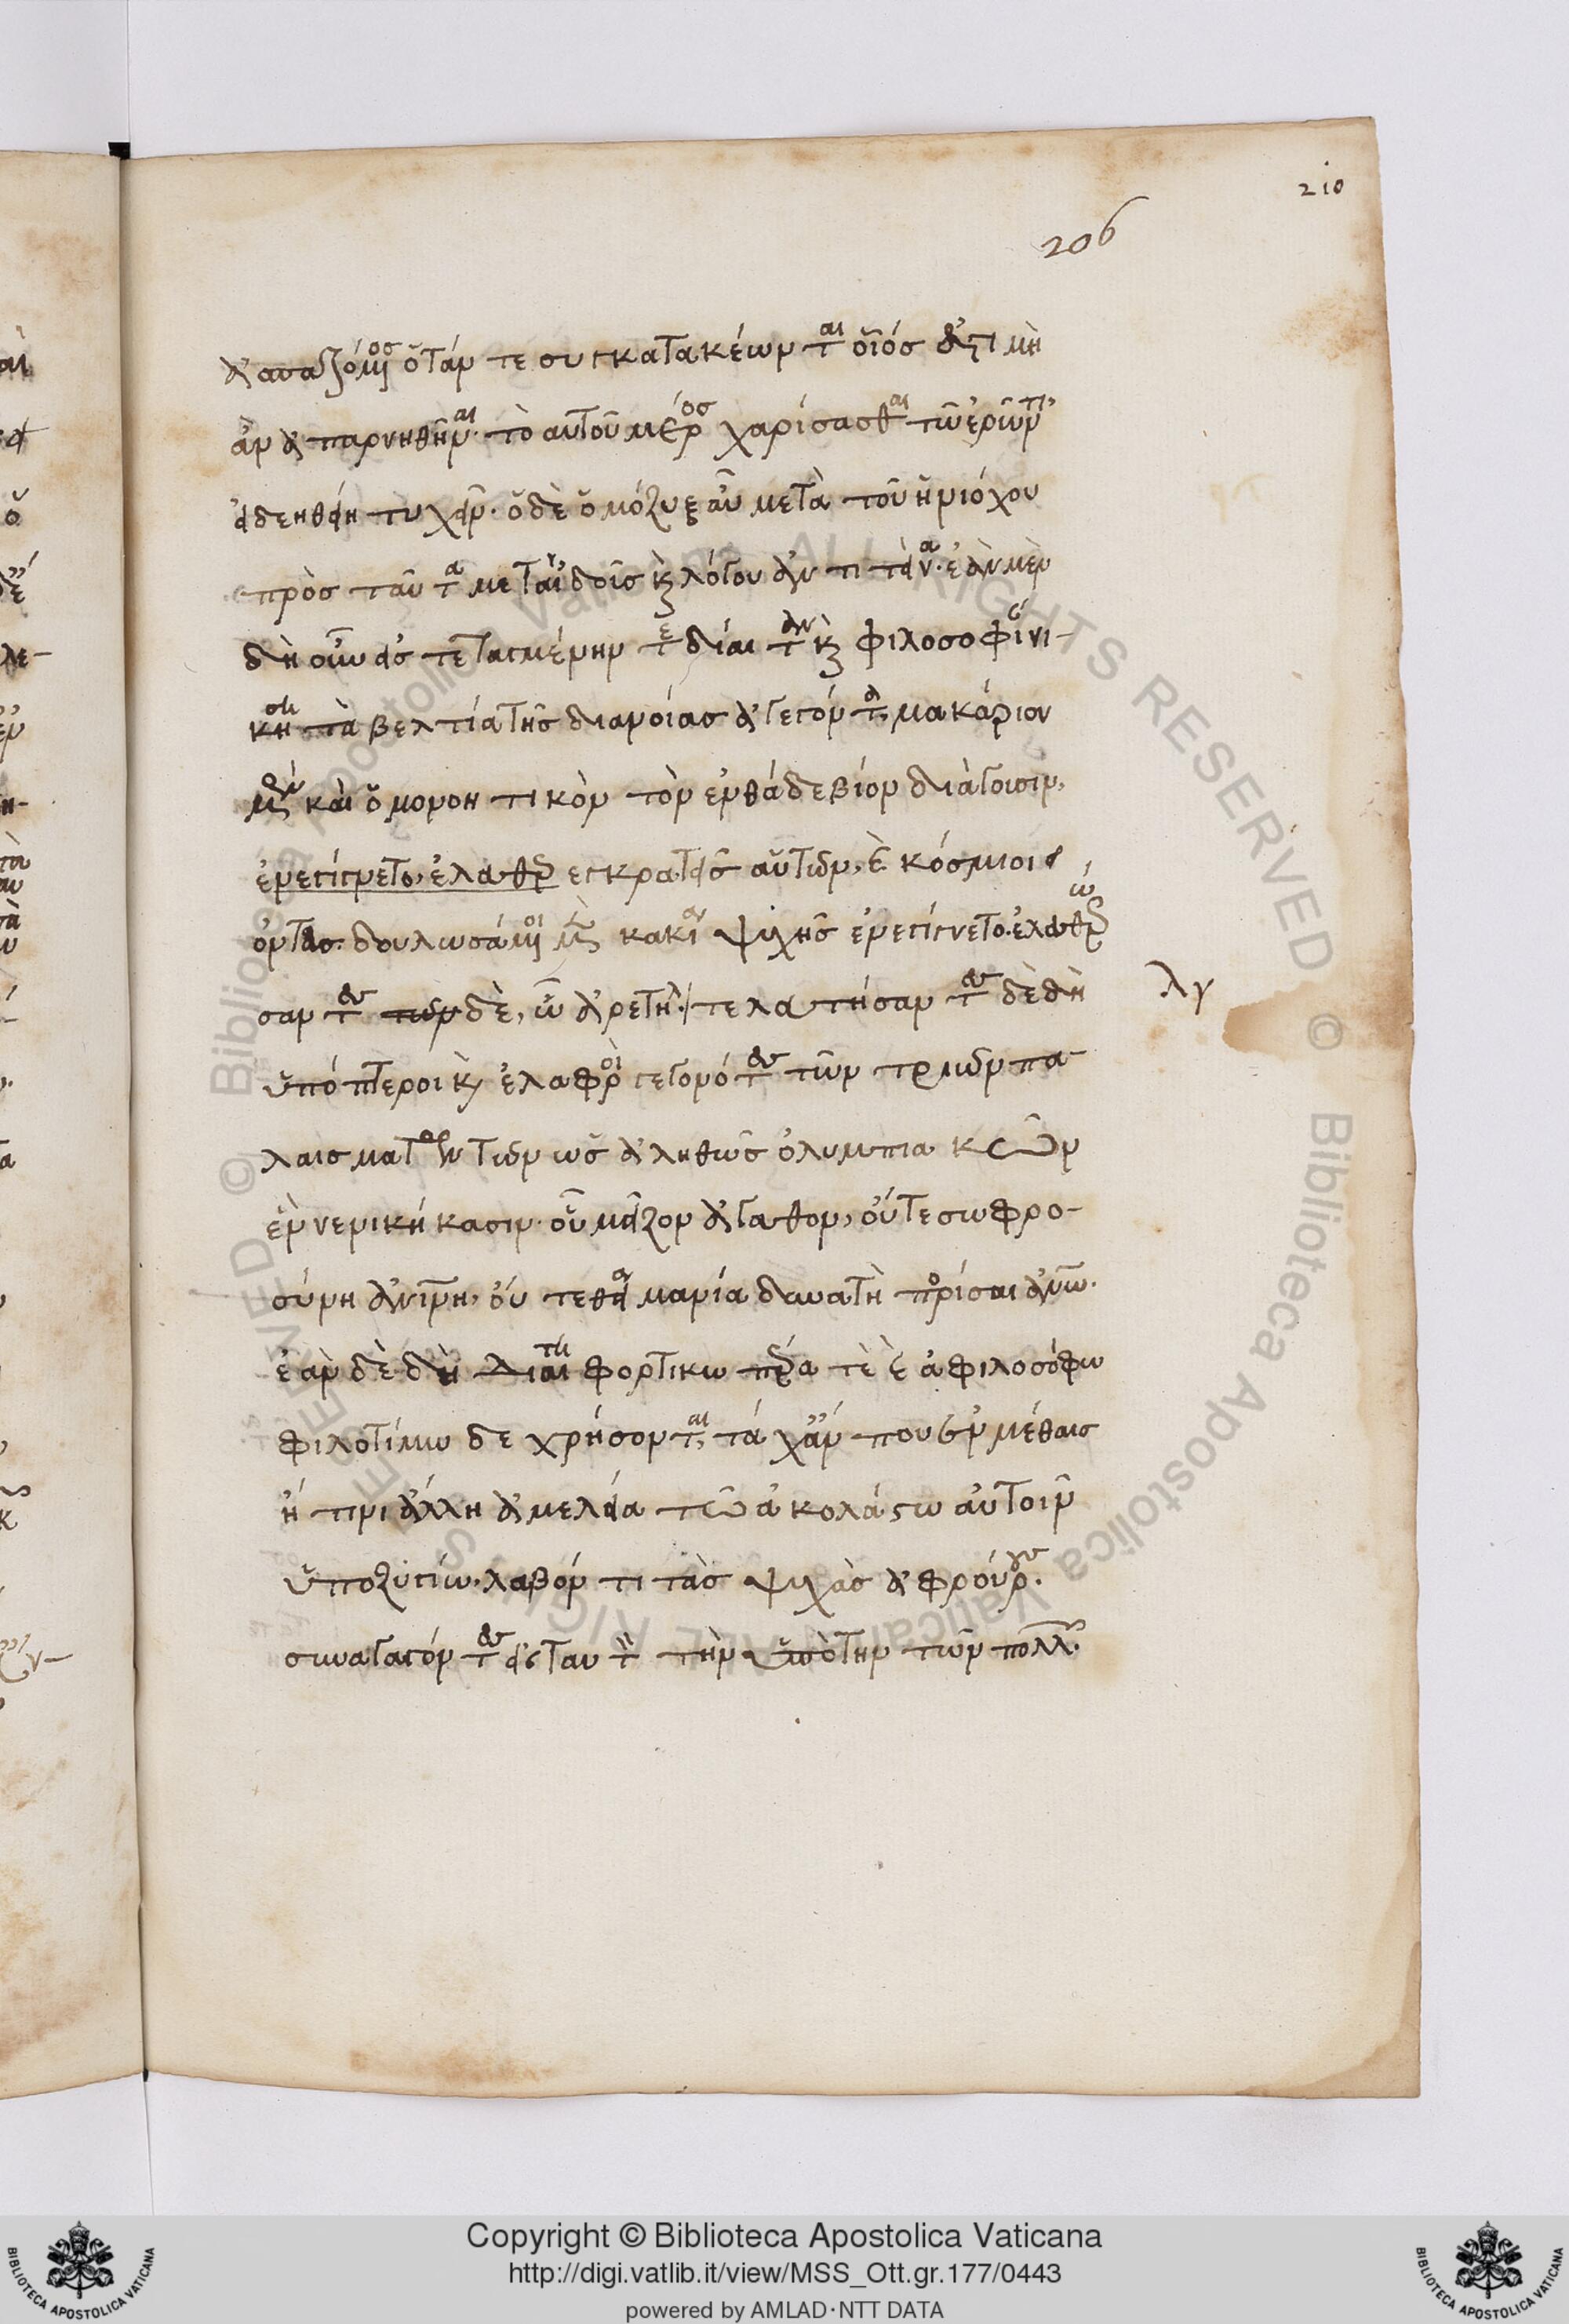 210
206
ἀσπαζόμενος ὅτάν τε συγκατακέωνται οἷός ἐστι μὴ
ἂν ἀπαρνηθῆναι τὸ αὑτοῦ μέρος χαρίσασθαι τῶ ἐρῶντι,
εἰ δεηθείη τυχεῖν. ὁ δὲ ὁμόζυξ αὖ μετὰ τοῦ ἡνιόχου
πρὸς ταῦτα μετ' αἰδοῦς καὶ λόγου ἀντιτείνει. ἐὰν μὲν
δὴ οὖν εἰς τεταγμένην τε δίαιταν καὶ φιλοσοφίαν νι-
κήση τὰ βελτίω τῆς διανοίας ἀγαγόντα μακάριον
μὲν καὶ ὁμονοητικὸν τὸν ἐνθάδε βίον διάγουσιν,
ἐνεγίγνετο, ἐλευθερ ἐγκρατεῖς αὑτῶν, καὶ κόσμιοι
ὄντες. δουλωσάμενοι μὲν ὧ κακία ψυχῆς ἐνεγίγνετο. ἐλευθερώ
σαντες δὲ, ὧ ἀρετή. τελευτήσαντες δὲ δὴ
λγ
ὑπόπτεροι καὶ ἐλαφροὶ γεγονότες τῶν τριῶν πα
λαισμάτων τῶν ὡς ἀληθῶς ὀλυμπιακῶν
ἓν νενικήκασιν. οὗ μεῖζον ἀγαθον, οὔτε σωφρο-
σύνη ἀνθρωπίνη, οὔτε θεία μανία δυνατὴ πορίσαι ἀνθρώπω.
ἐὰν δὲ δὴ διαίτη φορτικωτέρα τὲ καὶ ἀφιλοσόφω
φιλοτίμω δε χρήσονται τάχ' ἄν που ἐν μέθαις
ἤ τινι ἄλλη ἀμελεία τὼ ἀκολάστω αὐτοῖν
ὑποζυγίω. λαβόντι τὰς ψυχὰς ἀφρούρους.
συναγαγόντες εἰς ταυτὸ τὴν ὑπὸ τὴν τῶν πολλῶν
Copyright © Biblioteca Apostolica Vaticana
http://digi.vatlib.it/view/MSS_Ott.gr.177/0443
powered by AMLAD·NTT DATA